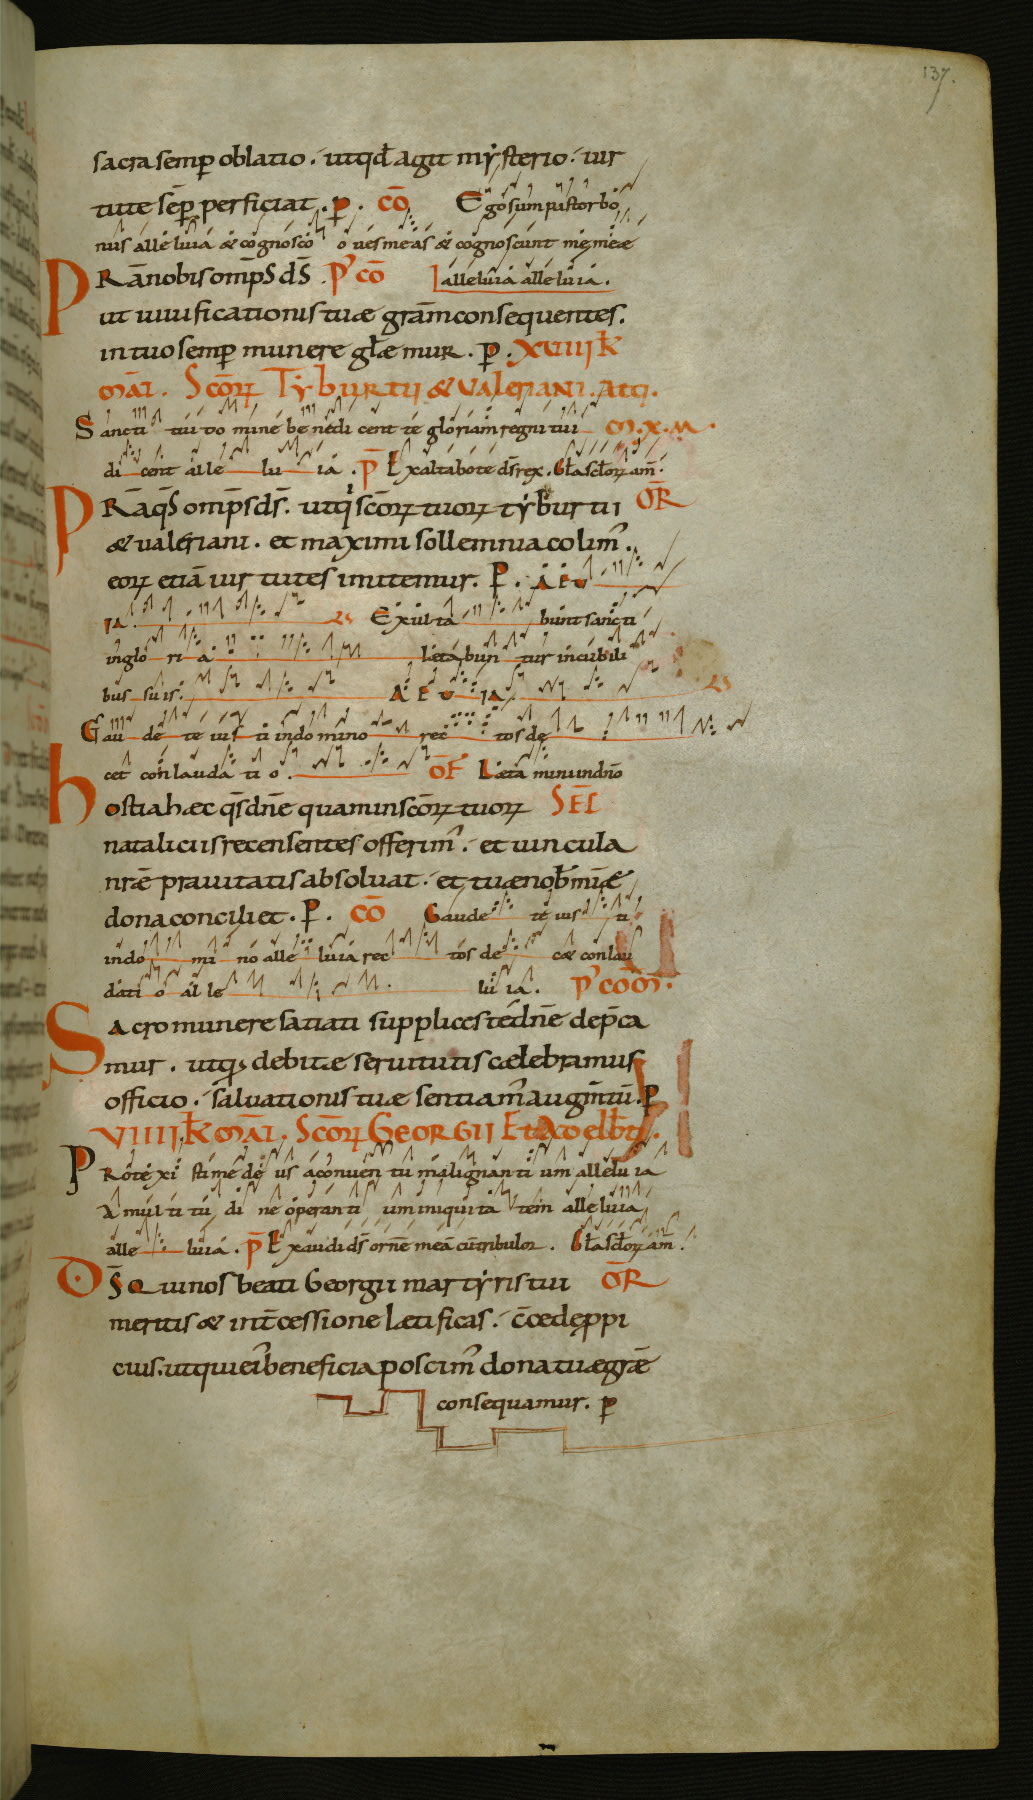 137.
sacra semp oblatio. utqd agit mysterio. uir
tute sep perficiat. p. CO Ego sum pastor bo
nus alleluia & cognosco oues meas & cognoscunt me meae
PRa nobis omps ds. P' CO alleluia alleluia.
ut uiuificationis tuae gram consequentes.
in tuo semp munere glemur. p. XVIII K
MAI. SCORꝝ TYBURTII & VALERIANI. ATQ.
Sancti tui domine benedicent te gloriam regni tui M.X.M.
dicent alleluia. P Exaltabo te ds rex. Gla scloꝝ am.
PRa qs omps ds. utqi scoꝝ tuoꝝ tyburtii OR
& ualeriani. et maximi sollemnia colim.
eoꝝ etiā uirtutes imitemur. P. AEU
IA. Exulta bunt sancti
in gloria laetabuntur in cubili
bus suis. AEUIA.
Gaudete iusti in domino rectos de
cet conlaudatio. OF Laetamini in dno
hostia haec qs dne quam in scoꝝ tuoꝝ SEC
nataliciis recensentes offerim. et uincula
nrae prauitatis absoluat. et tuae nob miae
dona conciliet. P. CO Gaudete iusti
in domino alleluia rectos decae conlau
datio alleluia. P' COM.
Sacro munere satiati supplices te dne depca
mur. utq debitae seruitutis caelebramus
officio. saluationis tuae sentiam augmtū. P
VIIII K MAI. SCORꝝ GEORGII
Protexisti me deus a conuentu malignantium alleluia
A multitudine operantium iniquitatem alleluia
alleluia. P Exaudi ds orne meā cū tribulor. Gla scloꝝ am.
DS Qui nos beati Georgii martyris tui OR
meritis & intcessione laetificas. cce de ppi
cius. ut qui ei beneficia poscim dona tuae grae
consequamur. p